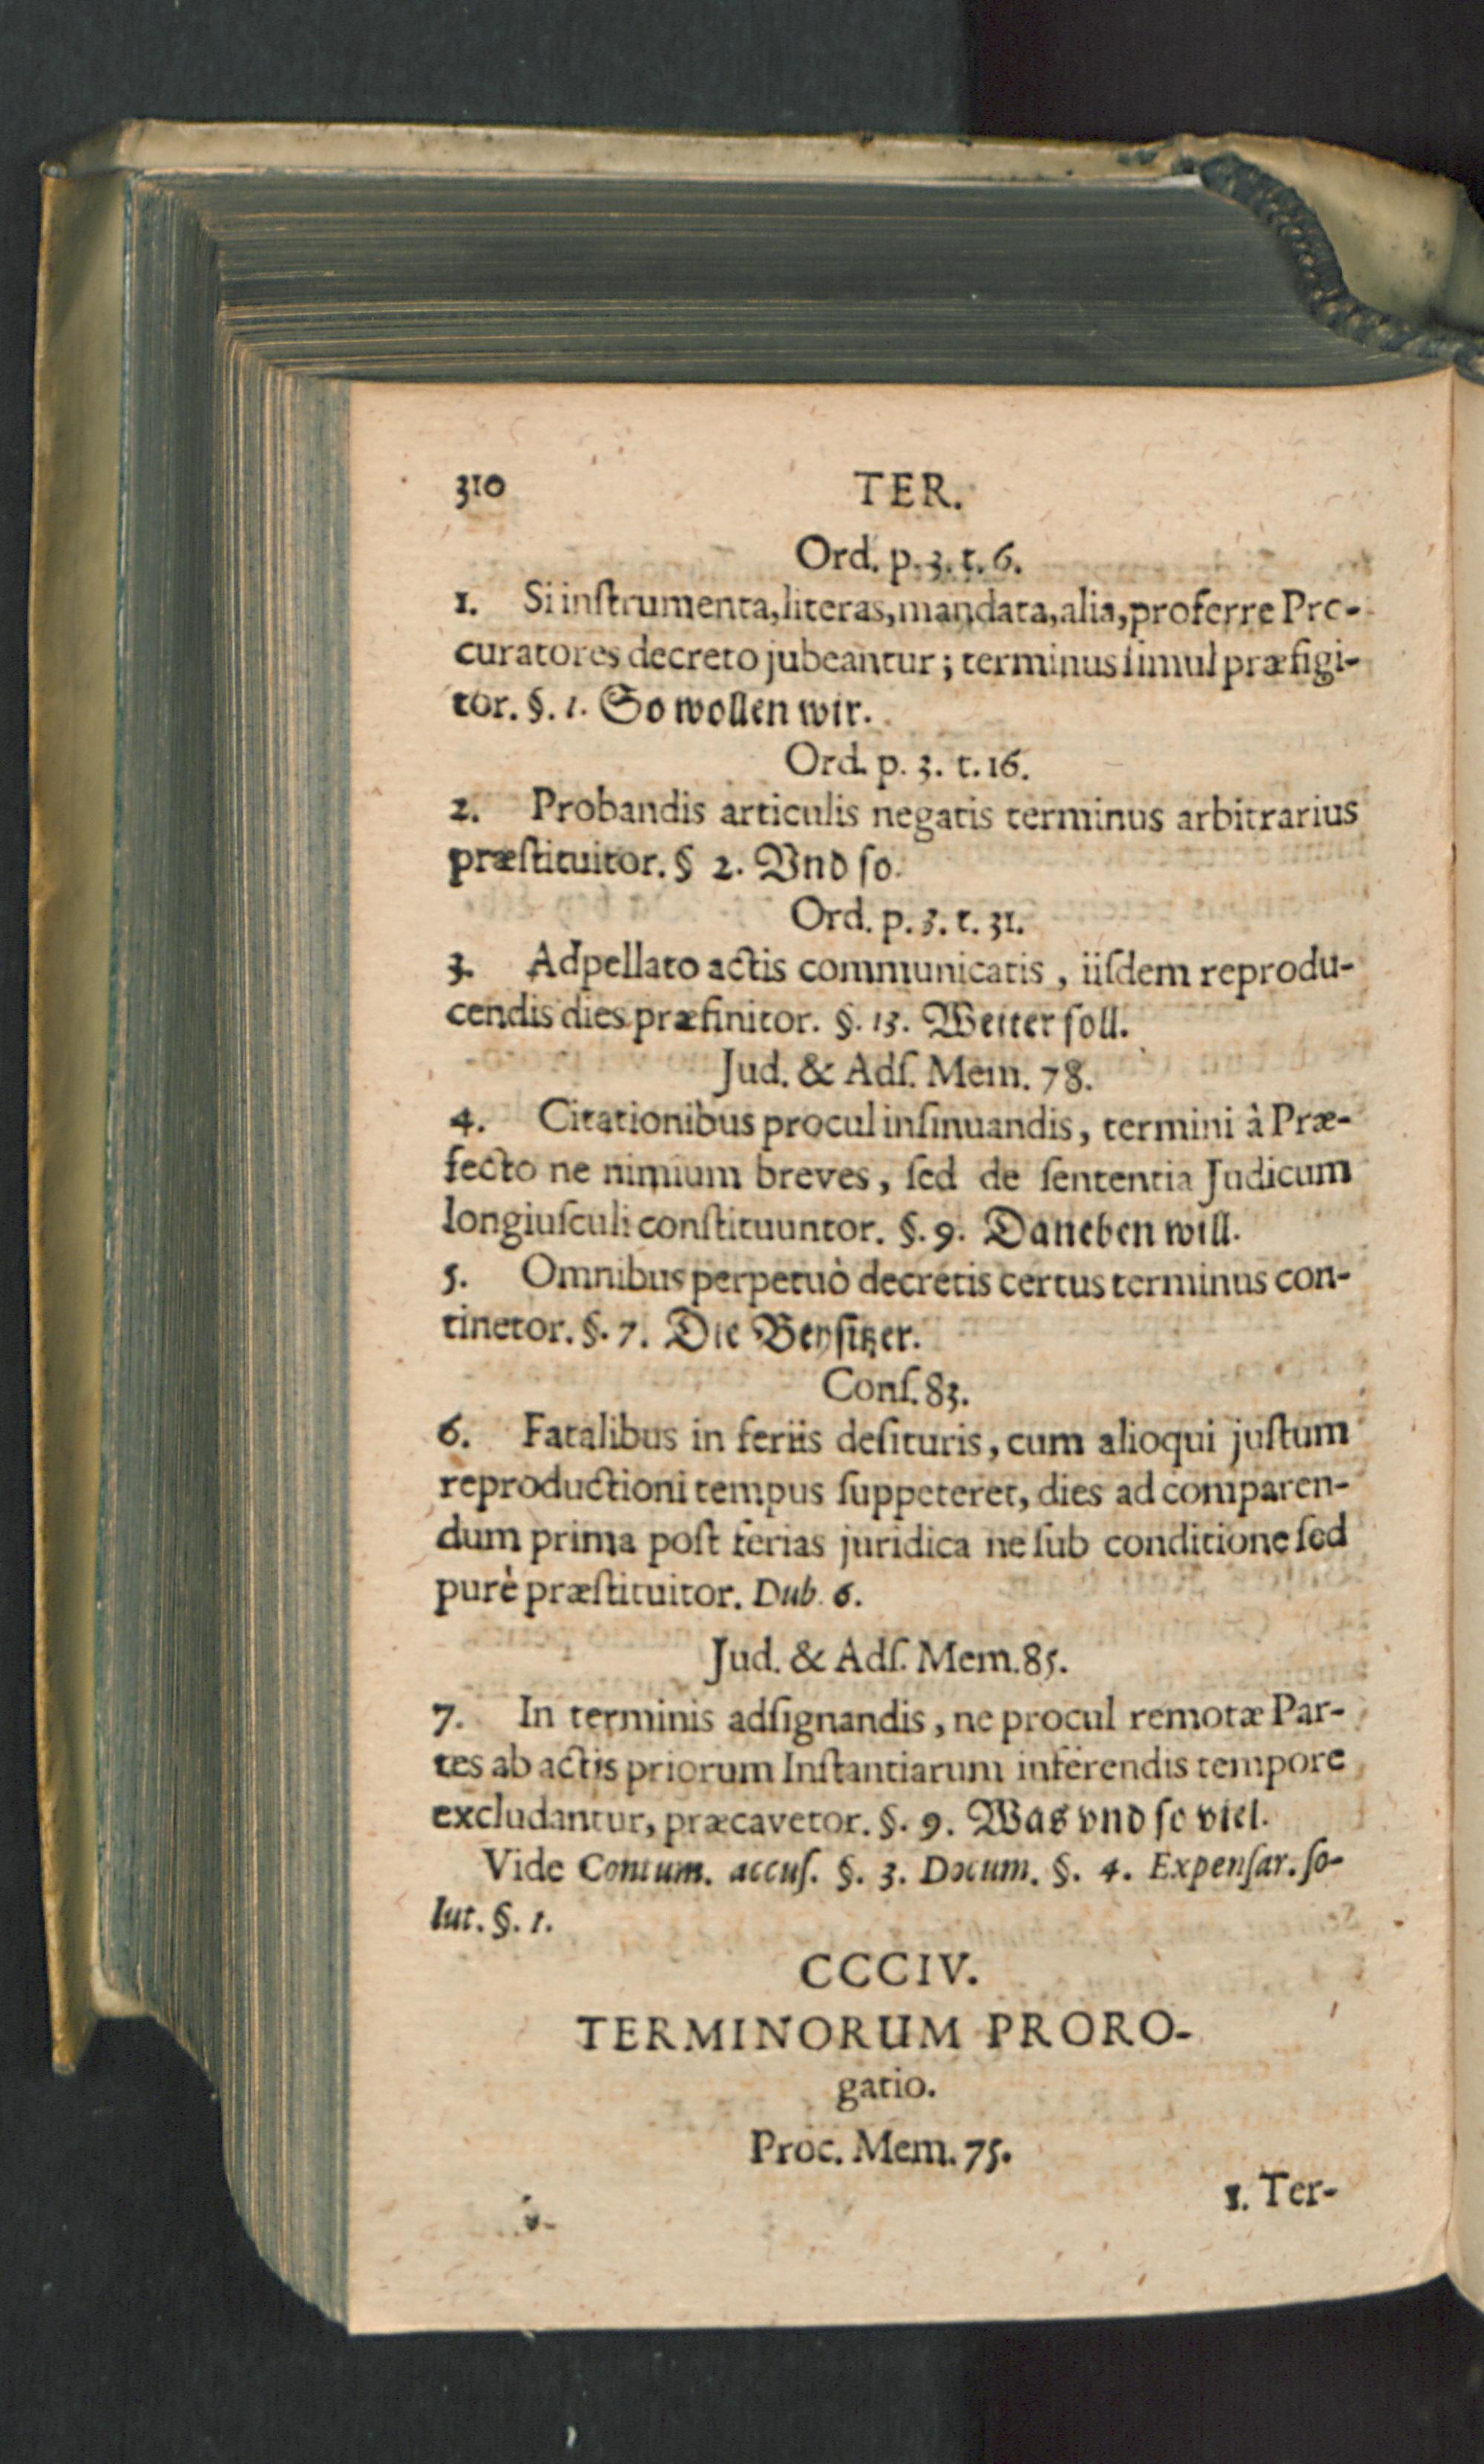 310 TER.
Ord. p. 3. t. 6.
1. Si inſtrumenta, literas, mandata, alia, proferre Pro-
curatores decreto jubeantur; terminus ſimul præfigi-
tor. §. 1. So wollen wir.
Ord. p. 3. t. 16.
2. Probandis articulis negatis terminus arbitrarius
præſtituitor. § 2. Vnd ſo.
Ord. p. 3. t. 31.
3. Adpellato actis communicatis, iiſdem reprodu-
cendis dies præfinitor. §. 13. Weiter ſoll.
Jud. & Adſ. Mem. 78.
4. Citationibus procul inſinuandis, termini à Præ-
fecto ne nimium breves, ſed de ſententia Judicum
longiuſculi conſtituuntor. §. 9. Daneben will.
5. Omnibus perpetuò decretis certus terminus con-
tinetor. §. 7. Die Beyſitzer.
Conſ. 83.
6. Fatalibus in feriis deſituris, cum alioqui juſtum
reproductioni tempus ſuppeteret, dies ad comparen-
dum prima poſt ferias juridica ne ſub conditione ſed
purè præſtituitor. Dub. 6.
Jud. & Adſ. Mem. 85.
7. In terminis adſignandis, ne procul remotæ Par-
tes ab actis priorum Inſtantiarum inferendis tempore
excludantur, præcavetor. §. 9. Was vnd ſo viel.
Vide Contum. accuſ. §. 3. Docum. §. 4. Expenſar. ſo-
lut. §. 1.
CCCIV.
TERMINORUM PRORO-
gatio.
Proc. Mem. 75.
1. Ter-